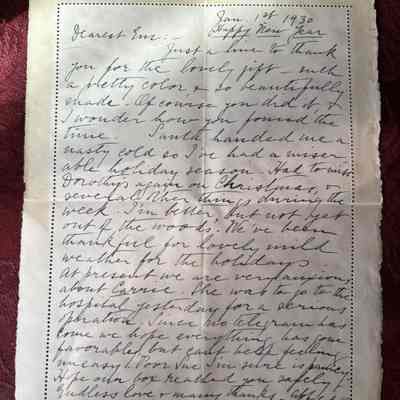 Jan. 1st 1930
Happy New Year
Dearest Em:-
Just a line to thank
you for the lovely gift - such
a pretty color & so beautifully
made. Of course you did it &
I wonder how you found the
time. Santa handed me a
nasty cold so I've had a miser-
able holiday season. Had to miss
Dorothy's again on Christmas, &
several other things during the
week. I'm better, but not yet
out of the woods. We've been
thankful for lovely mild
weather for the holidays
At present we are very anxious,
about Carrie. She was to go to the
hospital yesterday for a serious
operation. Since no telegram has
come we hope everything has gone
favorable, but can't help feeling
uneasy. Poor Sue I'm sure is
Hope our box reached you safely
Endless love & many thanks.